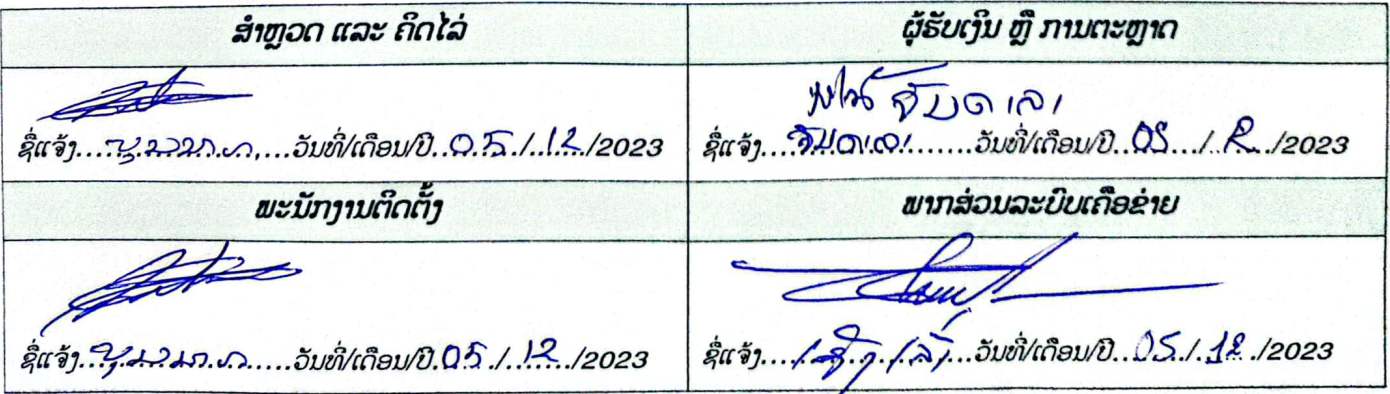 ສຳຫຼວດ ແລະ ຄິດໄລ່
ຜູ້ຮັບເງິນ ຫຼື ການຕະຫຼາດ
ຈັນດາລາ
ຊື່ແຈ້ງ..............ວັນທີ່/ເດືອນ/ປີ..05./..12./2023
ຊື່ແຈ້ງ....ຈັນດາລາ.........ວັນທີ່/ເດືອນ/ປີ..05..../..12../2023
ພະນັກງານຕິດຕັ້ງ
ພາກສ່ວນລະບົບເຄືອຂ່າຍ
ຊື່ແຈ້ງ..............ວັນທີ່/ເດືອນ/ປີ.05./..12../2023
ຊື່ແຈ້ງ..............ວັນທີ່/ເດືອນ/ປີ...05./.12../2023